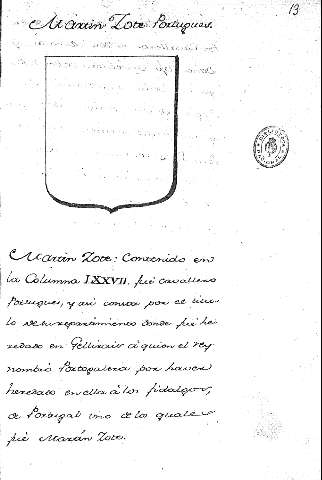 13
Martin Zote Portugues.
Martin Zote: Contenido en
la Columna LXXVII. fué cavallero
Portugues, y asi consta por el titu-
lo de su repartimiento donde fué he-
redado en Gellinar à quien el rey
nombró Portogalera por haver
heredado en ella á los fidalgos,
de Portugal uno de los quales
fué Martin Zote.